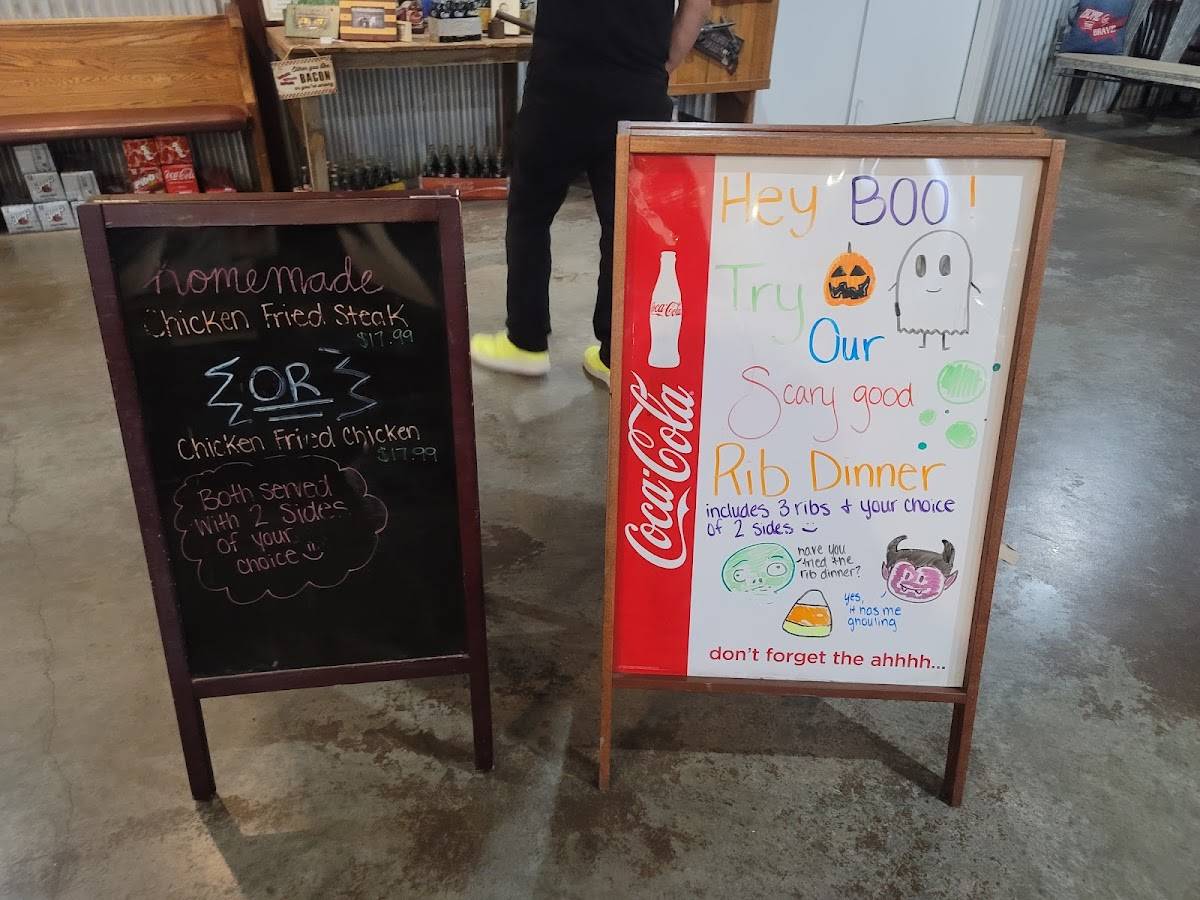 BACON
HOME of the BRAVE
Coca-Cola
homemade
Chicken Fried Steak
$17.99
OR
Chicken Fried Chicken
$17.99
Both served
with 2 Sides
of your
choice
Hey BOO!
Try
Our
Scary good
Rib Dinner
includes 3 ribs & your choice
of 2 sides
have you
tried the
rib dinner?
yes,
it has me
ghouling
don't forget the ahhhh...
Coca-Cola
Coca-Cola